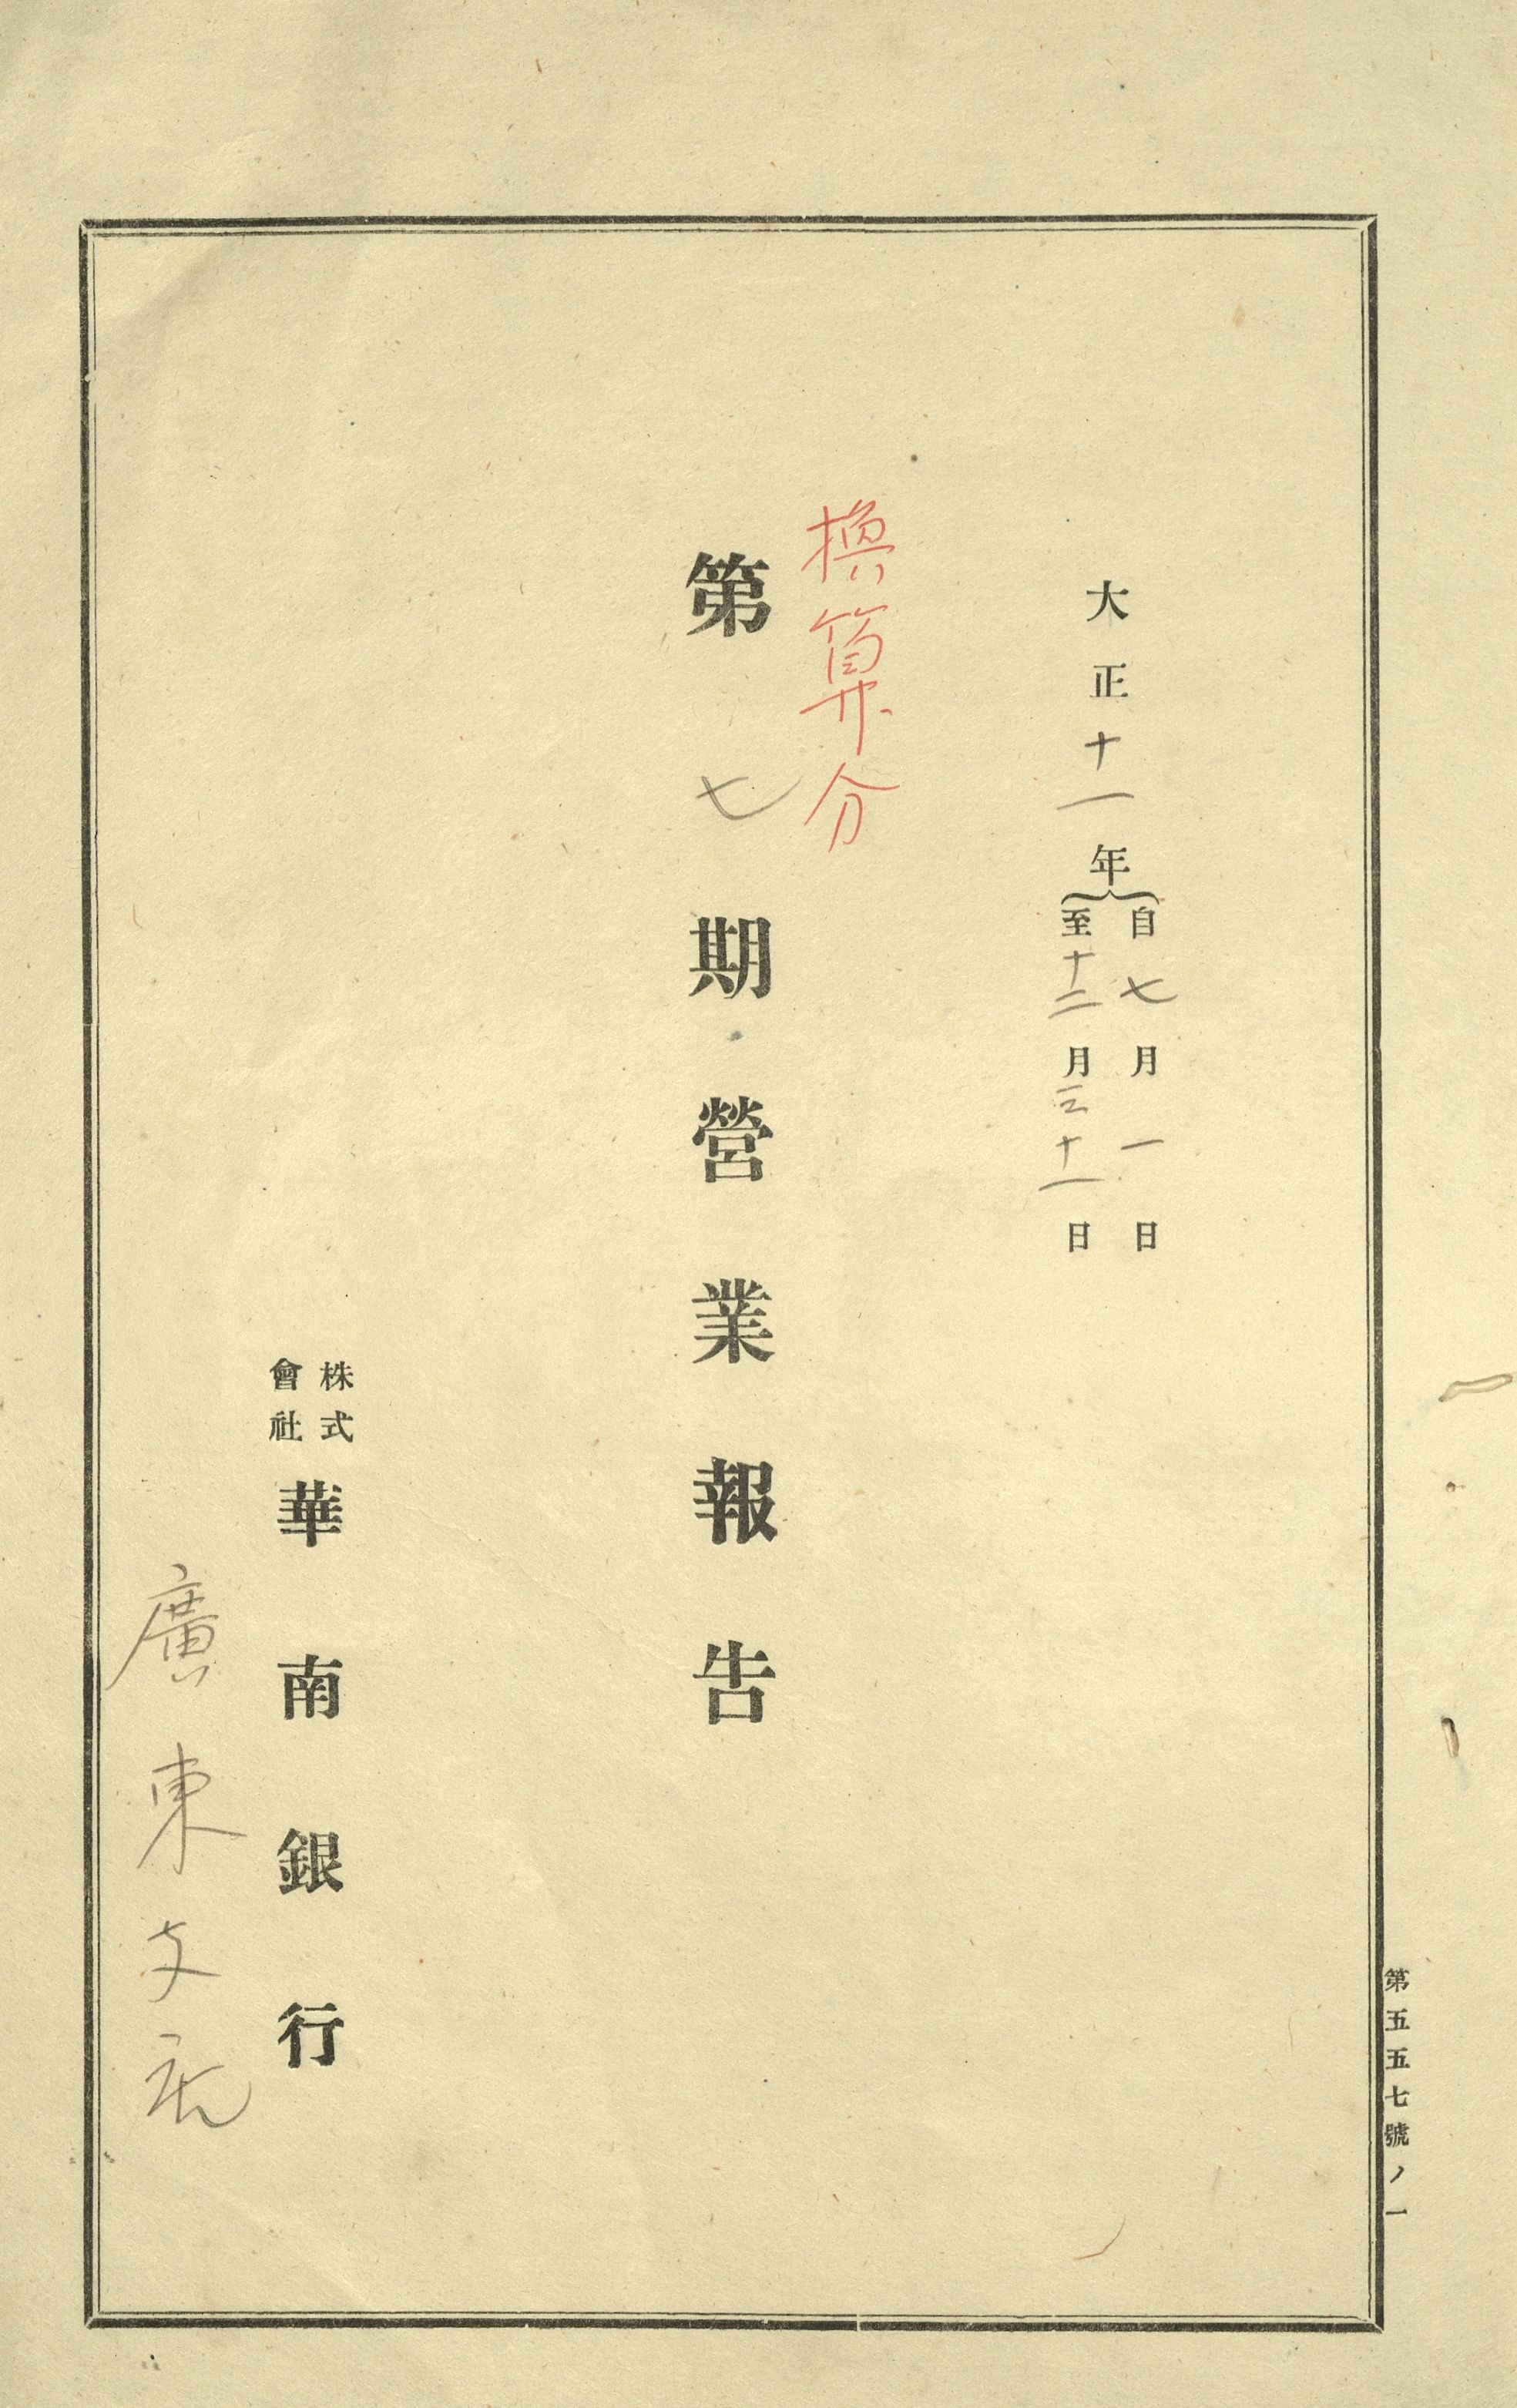 大正十一年
自七月一日
至十二月三十一日
換算分
第七期營業報告
株式會社華南銀行
廣東支店
第五五七號ノ一